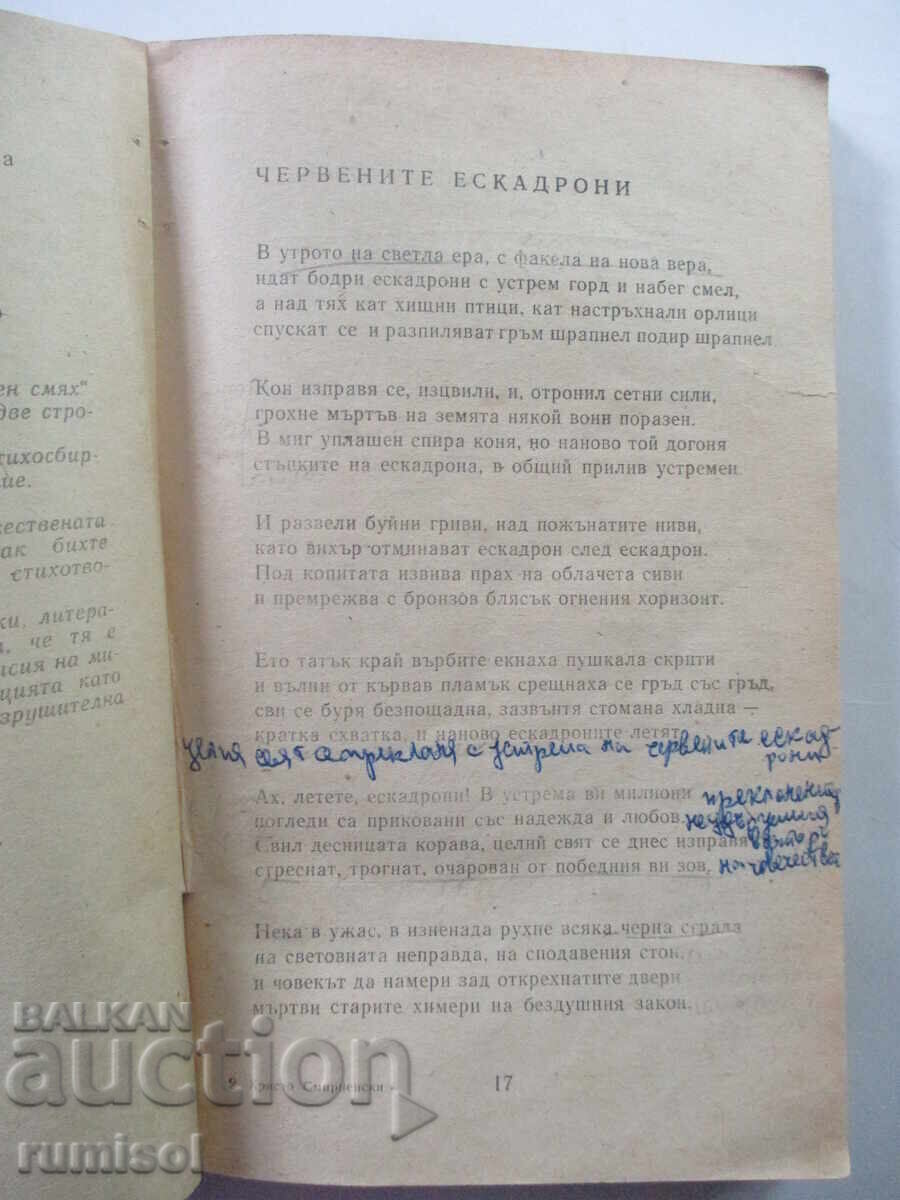 а
ен смях"
две стро-
тихосбир-
ие.
жествената
ак бихте
стихотво-
ки, литера-
, че тя е
исия на ми-
цията като
зрушителна
ЧЕРВЕНИТЕ ЕСКАДРОНИ
В утрото на светла ера, с факела на нова вера,
идат бодри ескадрони с устрем горд и набег смел,
а над тях кат хищни птици, кат настръхнали орлици
спускат се и разпиляват гръм шрапнел подир шрапнел
Кон изправя се, изцвили, и, отронил сетни сили,
грохне мъртъв на земята някой вони поразен.
В миг уплашен спира коня, но наново той догоня
стъпките на ескадрона, в общий прилив устремен
И развели буйни гриви, над пожънатите ниви,
като вихър отминават ескадрон след ескадрон.
Под копитата извива прах на облачета сиви
и премрежва с бронзов блясък огнения хоризонт.
Ето татък край върбите екнаха пушкала скрити
и вълни от кървав пламък срещнаха се гръд със гръд,
сви се буря безпощадна, зазвънтя стомана хладна —
кратка схватка, и наново ескадроните летят
целия свят се прекланя с устрема на червените ескад-
рони
Ах, летете, ескадрони! В устрема ви милиони
погледи са приковани със надежда и любов.
Свил десницата корава, целий свят се днес изправя
стреснат, трогнат, очарован от победния ви зов,
на човечеството
Нека в ужас, в изненада рухне всяка черна сграда
на световната неправда, на сподавения стон,
и човекът да намери зад открехнатите двери
мъртви старите химери на бездушния закон.
2 Христо Смирненски
17
BALKAN
auction
rumisol